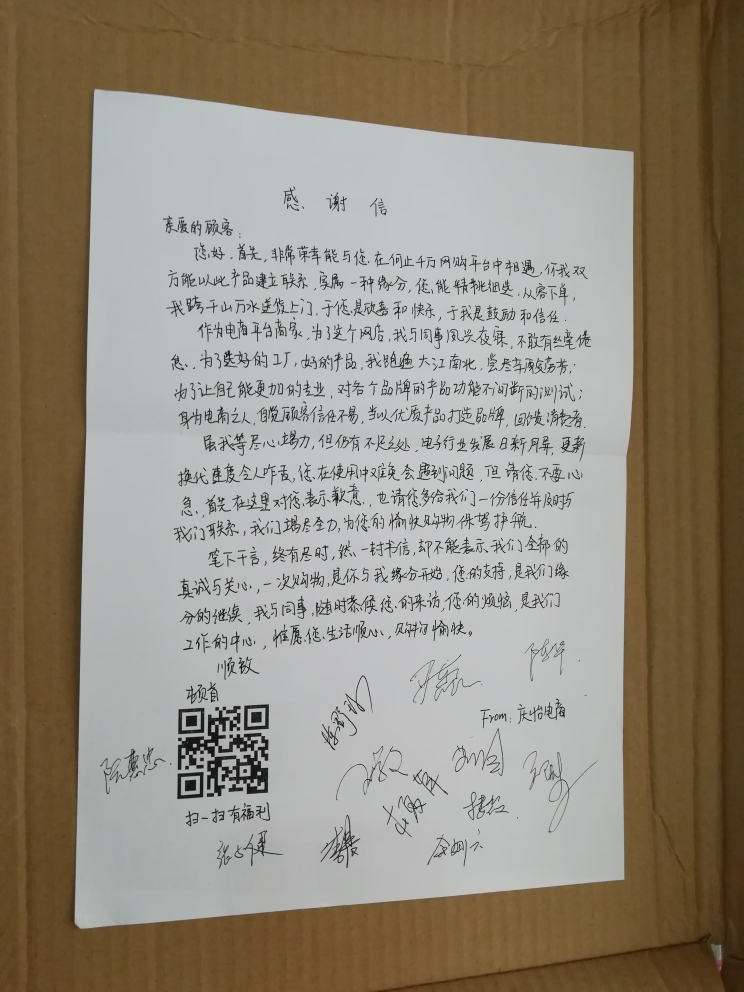 感谢信
亲爱的顾客:
您好,首先,非常荣幸能与您在何止千万网购平台中相遇,你我双
方能以此产品建立联系,实属一种缘分,您能精挑细选,从容下单,
我跨千山万水送货上门,于您是欣喜和快乐,于我是鼓励和信任.
作为电商平台商家,为了这个网店,我与同事夙兴夜寐,不敢有丝毫倦
怠,为了选好的工厂,好的产品,我跑遍大江南北,尝尽车马劳苦;
为了让自己能更加的专业,对各个品牌的产品功能不间断的测试;
身为电商之人,自觉顾客信任不易,当以优质产品打造品牌,回馈消费者.
虽我等尽心竭力,但仍有不足之处,电子行业发展日新月异,更新
换代速度令人咋舌,您在使用中难免会遇到问题,但请您不要心
急,首先在这里对您表示歉意,也请您多给我们一份信任并及时与
我们联系,我们竭尽全力,为您的愉快购物保驾护航.
笔下千言,终有尽时,然,一封书信,却不能表示我们全部的
真诚与关心,一次购物,是你与我缘分开始,您的支持,是我们缘
分的继续,我与同事,随时恭候您的来访,您的烦恼,是我们
工作的中心,惟愿您生活顺心,购物愉快。
顺致
顿首
From:庆怡电商
扫一扫有福利